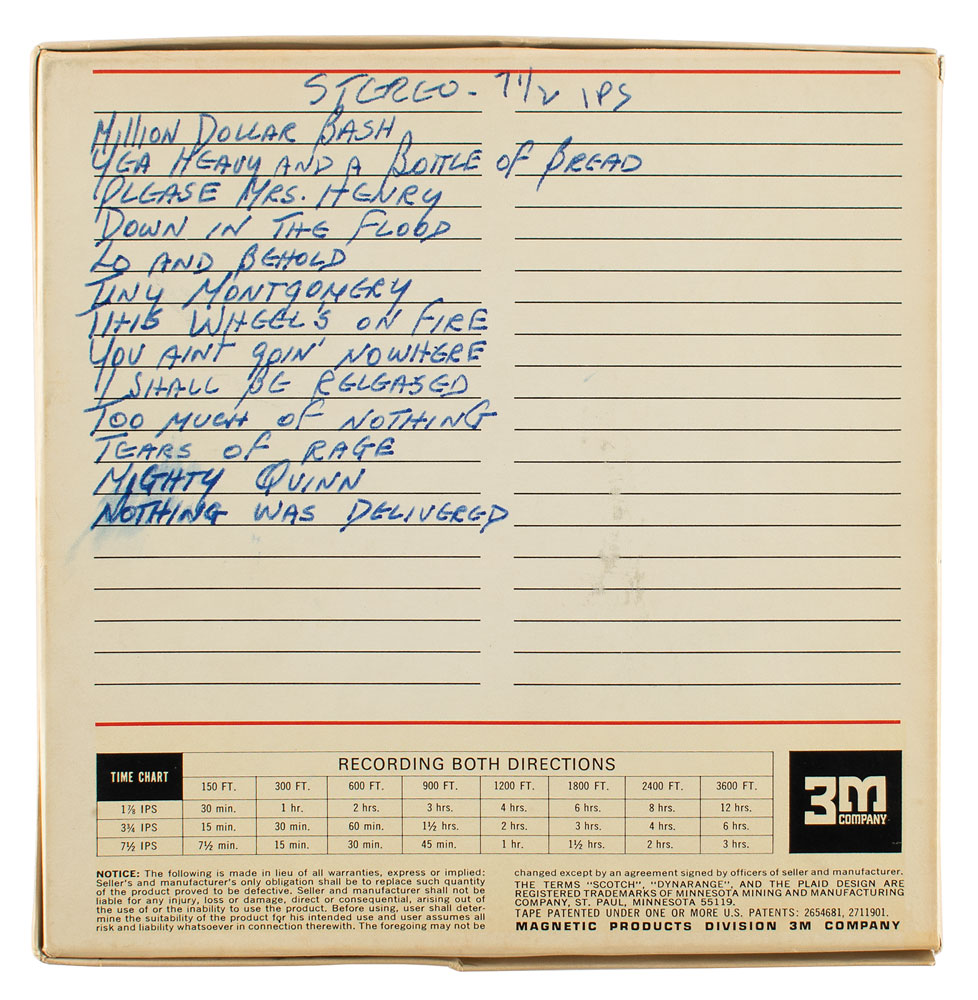 STEREO - 7 1/2 IPS
MILLION DOLLAR BASH
YEA HEAVY AND A BOTTLE OF BREAD
PLEASE MRS. HENRY
DOWN IN THE FLOOD
LO AND BEHOLD
TINY MONTGOMERY
THIS WHEEL'S ON FIRE
YOU AINT GOIN' NOWHERE
I SHALL BE RELEASED
TOO MUCH OF NOTHING
TEARS OF RAGE
MIGHTY QUINN
NOTHING WAS DELIVERED
TIME CHART
RECORDING BOTH DIRECTIONS
150 FT. 300 FT. 600 FT. 900 FT. 1200 FT. 1800 FT. 2400 FT. 3600 FT.
1⅞ IPS 30 min. 1 hr. 2 hrs. 3 hrs. 4 hrs. 6 hrs. 8 hrs. 12 hrs.
3¾ IPS 15 min. 30 min. 60 min. 1½ hrs. 2 hrs. 3 hrs. 4 hrs. 6 hrs.
7½ IPS 7½ min. 15 min. 30 min. 45 min. 1 hr. 1½ hrs. 2 hrs. 3 hrs.
3M
COMPANY
NOTICE: The following is made in lieu of all warranties, express or implied:
Seller's and manufacturer's only obligation shall be to replace such quantity
of the product proved to be defective. Seller and manufacturer shall not be
liable for any injury, loss or damage, direct or consequential, arising out of
the use of or the inability to use the product. Before using, user shall deter-
mine the suitability of the product for his intended use and user assumes all
risk and liability whatsoever in connection therewith. The foregoing may not be
changed except by an agreement signed by officers of seller and manufacturer.
THE TERMS "SCOTCH", "DYNARANGE", AND THE PLAID DESIGN ARE
REGISTERED TRADEMARKS OF MINNESOTA MINING AND MANUFACTURING
COMPANY, ST. PAUL, MINNESOTA 55119.
TAPE PATENTED UNDER ONE OR MORE U.S. PATENTS: 2654681, 2711901.
MAGNETIC PRODUCTS DIVISION 3M COMPANY